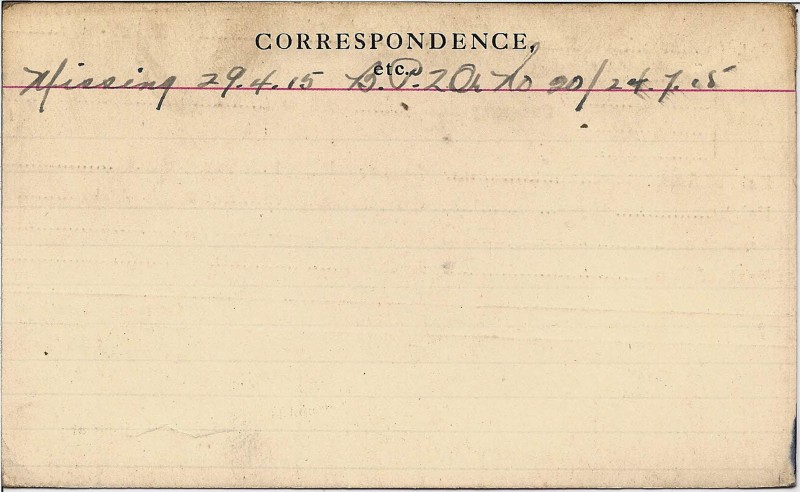 CORRESPONDENCE,
etc.
Missing 29.4.15 B.P. 2 No 20/24.7.15